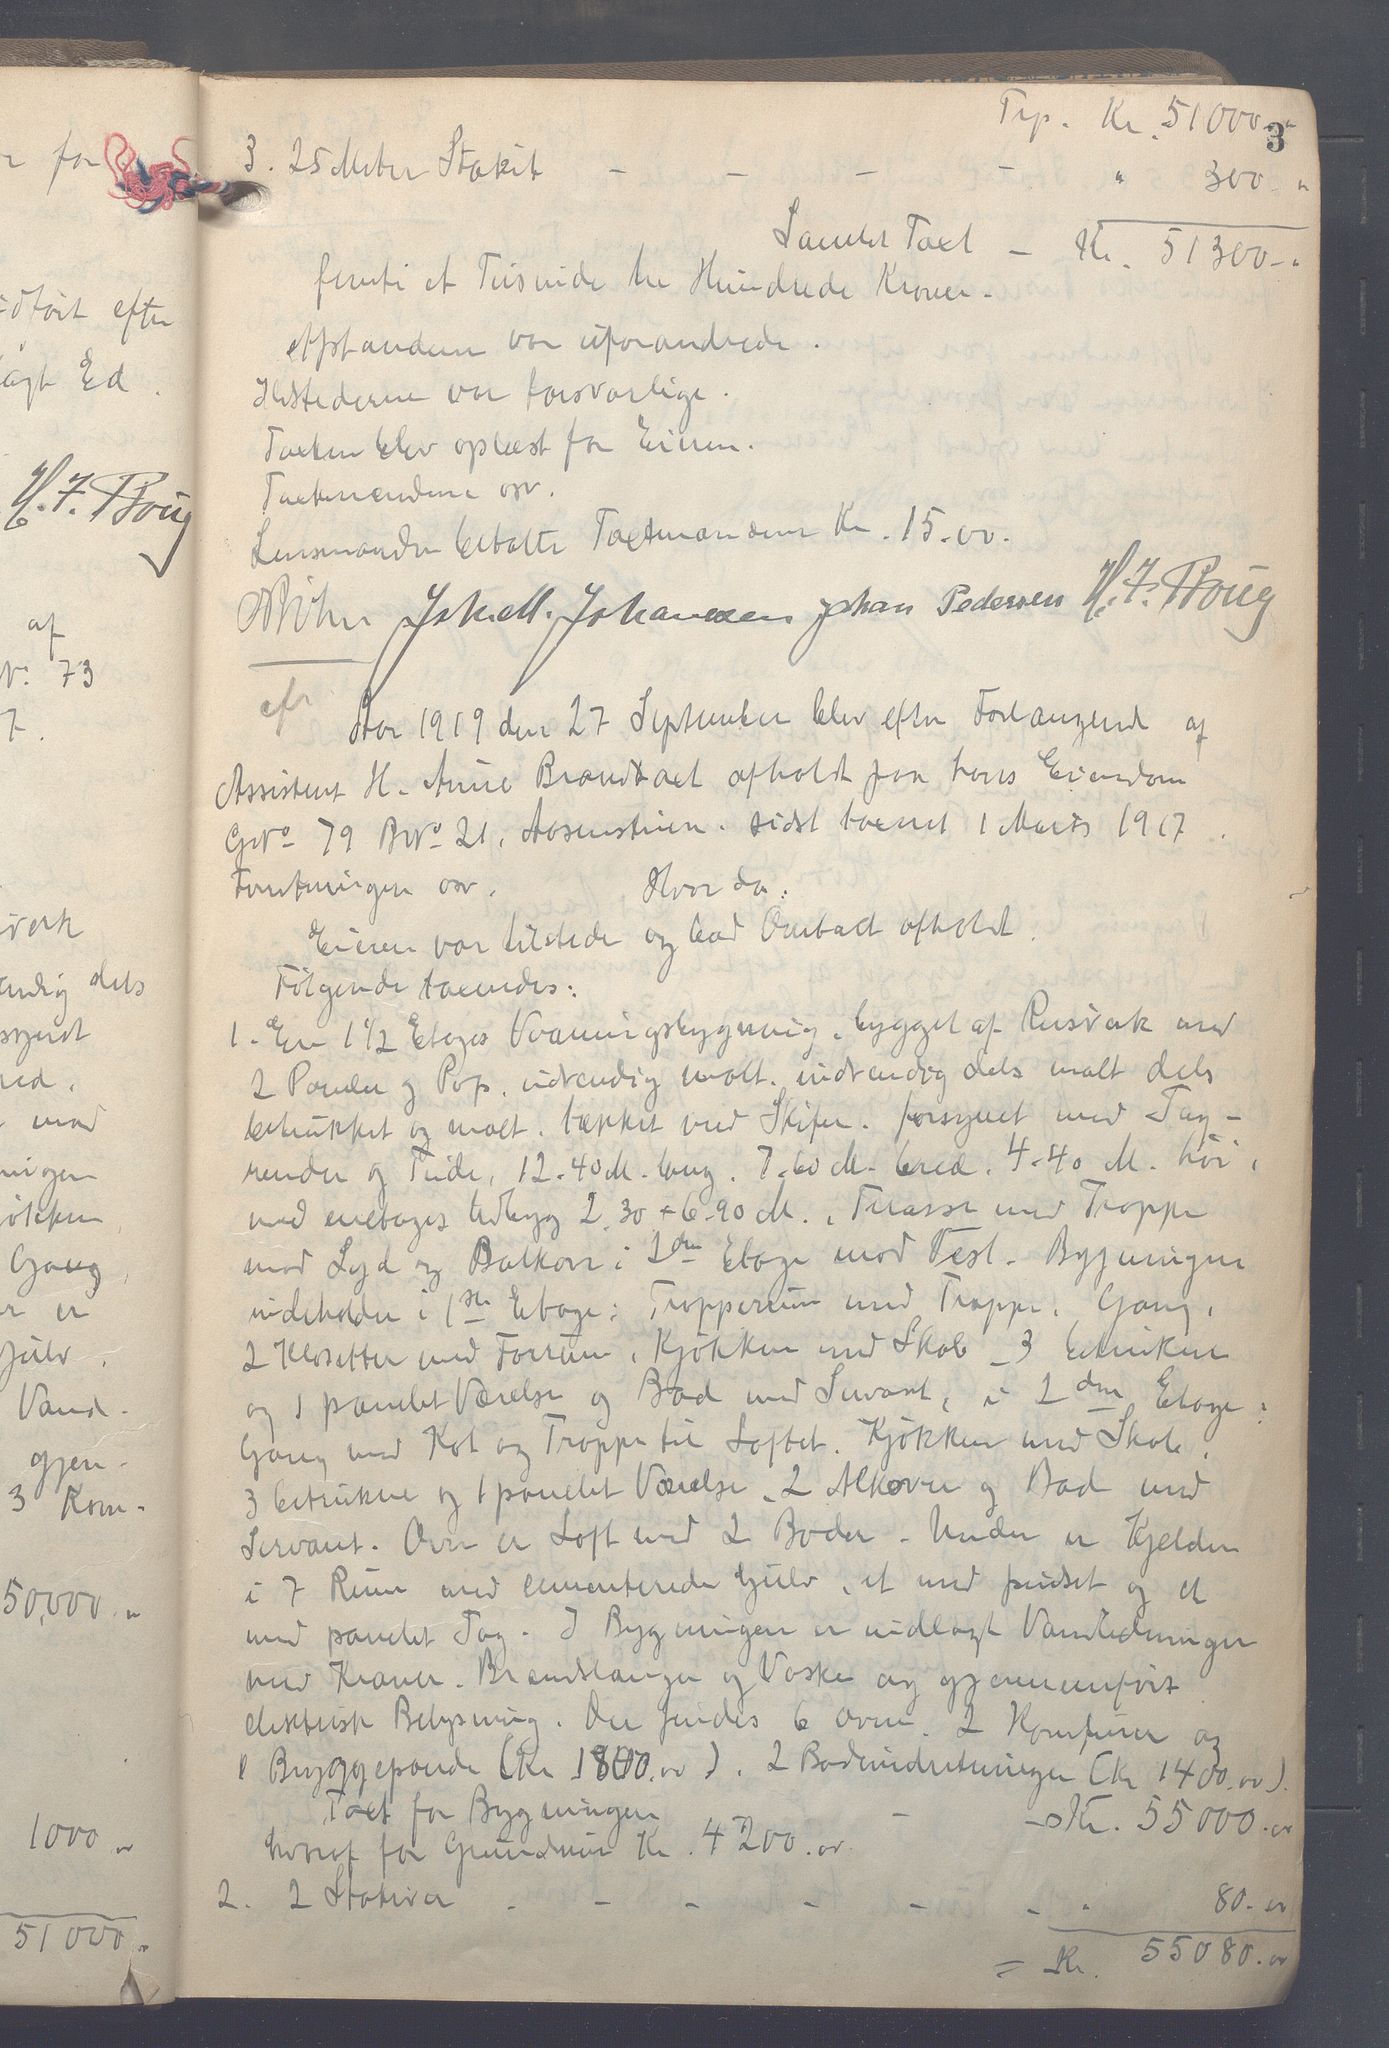 3
Trp. Kr. 51000. "
3. 25 Meter Stakit - - - - " 300 - "
Samlet Taxt - Kr. 51300 - "
femti et Tusinde tre Hundrede Kroner.
Afstandene var uforandrede.
Ildstederne var forsvarlige.
Taxten blev oplæst for Eieren.
Taxtmændene osv.
Lensmanden betalte Taxtmændene Kr. 15.00.
Joh. M. Johannessen Johan Pedersen H. F. Boug
Aar 1919 den 27 September blev efter Forlangende af
Assistent H. Brandtaxt afholdt paa hans Eiendom
GNo 79 BNo 21, sidst taxeret 1 Marts 1917.
Forretningen osv. Hvorda:
Eieren var tilstede og bad Omtaxt afholdt.
Følgende taxeredes:
1. En 1 1/2 Etages Vaaningsbygning, bygget af Reisverk med
2 Paneler og Pap, udvendig malt, indvendig dels malt dels
betrukket og malt, tækket med Skifer, forsynet med Tag-
render og 12.40 M. lang, 7.60 M. bred, 4.40 M. høi,
med enetages Udbyg 2.30 + 6.90 M., Terasse med Trappe
mod Syd og Balkon i 2den Etage mod Vest. Bygningen
indeholder i 1ste Etage: Trapperum med Trappe, Gang,
2 Klosetter med Forrum, Kjøkken med Skab, 3 betrukne
og 1 panelet Værelse og Bad med Servant, i 2den Etage:
Gang med Kot og Trappe til Loftet, Kjøkken med Skab,
3 betrukne og 1 panelet Værelse, 2 Alkover og Bad med
Servant. Over er Loft med 2 Boder. Under er Kjelder
i 7 Rum med cementerede Gulv, et med pudset og et
med panelet Tag. I Bygningen er indlagt Vandledninger
med Kraner, Brandslanger og Vaske og gjennemført
elektrisk Belysning. Der findes 6 Ovne, 2 Komfurer og
1 Bryggepande (Kr 1800.00), 2 Badeindretninger (Kr 1400.00).
Taxt for Bygningen - - Kr. 55000.00
hvoraf for Grundmur Kr. 4200.00
2. 2 Stakiter - - - - - - " 80.00
= Kr. 55080.00
r for
idført efter
lagt Ed.
H. F. Boug
af
Nr. 73
7.
sverk
endig dels
rsynet
red,
mod
ningen
økken,
Gang,
er er
Gulv,
Vand-
gjen-
3 Kom-
50,000. "
1000 "
51000. "